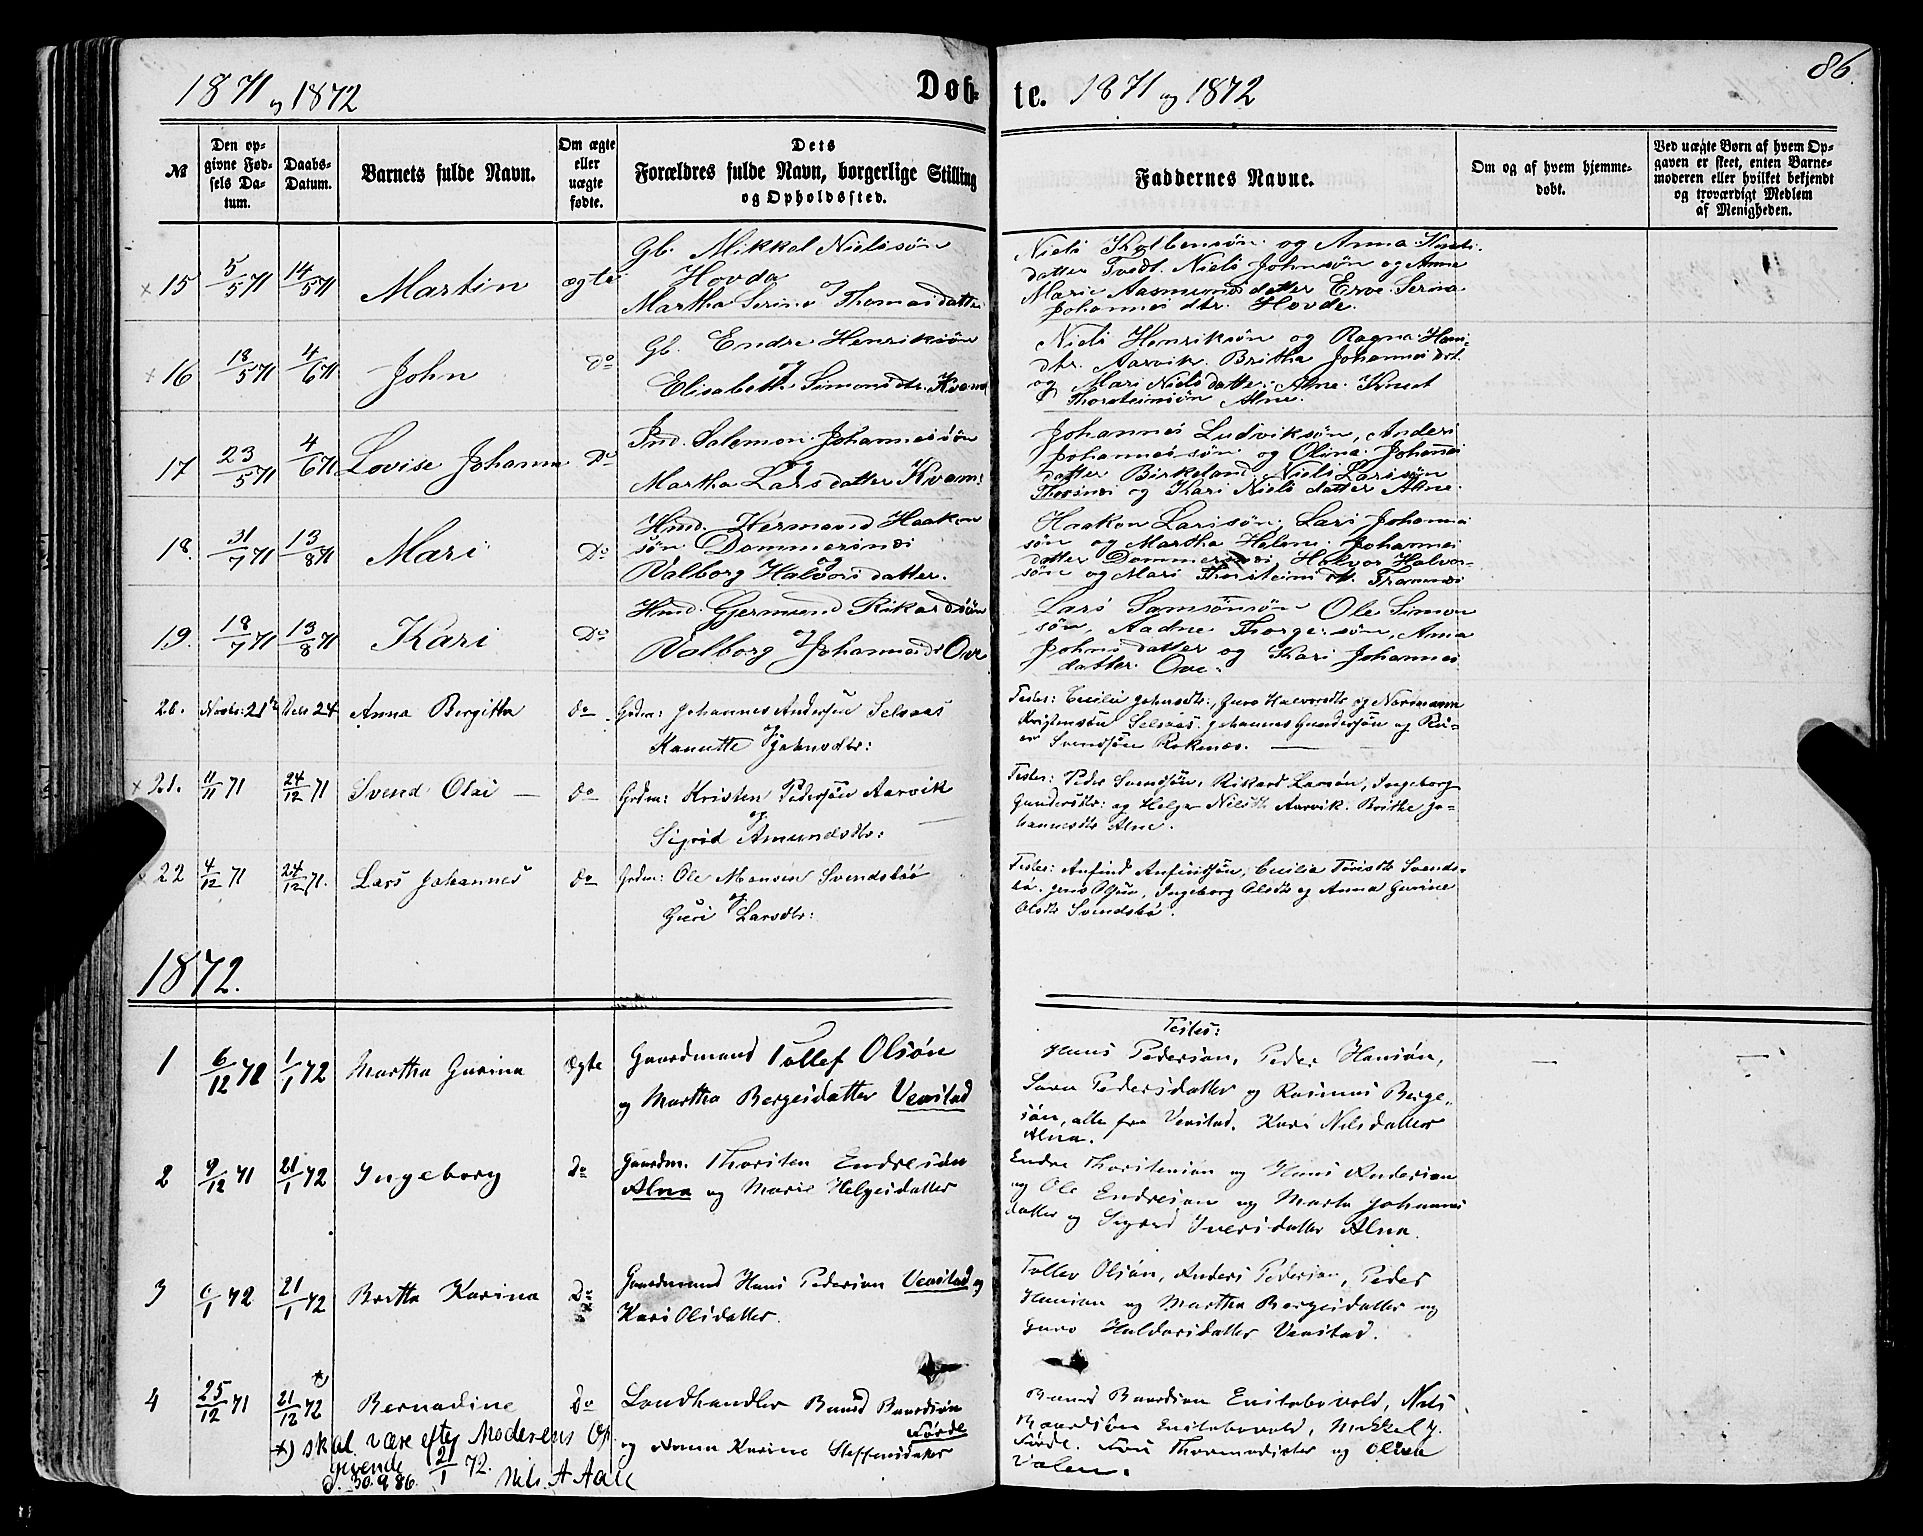 1871 og 1872
Døb-
te. 1871 og 1872
86.
№
Den op-
givne Fød-
sels Da-
tum.
Daabs-
Datum.
Barnets fulde Navn.
Om ægte
eller
uægte
fødte.
Dets
Forældres fulde Navn, borgerlige Stilling
og Opholdssted.
Faddernes Navne.
Om og af hvem hjemme-
døbt.
Ved uægte Børn af hvem Op-
gaven er skeet, enten Barne-
moderen eller hvilket bekjendt
og troværdigt Medlem
af Menigheden.
x 15 5/5 71 14/5 71 Martin ægte
Gb. Mikkal Nielssøn
Hovda
Martha Serina Thomasdatter
Niels Kolbensøn og Anna
datter Tvedt. Niels Johnsøn og Anna
Marie Aasmundsdatter Erve. Serina
Johannes dtr. Hovda.
x 16 18/5 71 4/6 71 John do
Gb. Endre Henriksøn
og
Elisabeth Simonsdtr. Kvam
Niels Henriksøn og Ragna Hans
dtr. Aarvik. Britha Johannes dot.
og Mari Niels datter Alne. Knut
Thorsteinsøn Alne.
17 23/5 71 4/6 71 Lovise Johanna Do
Ind. Salemon Johannessøn
og
Martha Lars datter Kvam:
Johannes Ludviksøn, Anders
Johannessøn og Olina Johannes
datter Birkeland, Niels Larssøn
og Kari Niels datter Alne.
18. 31/7 71 13/8 71 Mari Do
Hmd. Hermand Haakon
søn Dommersnes
og
Valborg Halvors datter.
Haakon Larssøn, Lars Johannes
søn og Martha Helene Johannes
datter Dommersnes, Halvor Halvor-
søn og Mari Thorsteins dtr.
19. 18/7 71 13/8 71 Kari Do
Hmd. Gjermund Rikardsøn
og
Valborg Johannesdr Ove
Lars Samsonsøn Ole Simon
søn, Aadne Thorgersøn, Anna
Johns datter og Kari Johannes
datter Ove.
20. Novbr: 21de Decbr 24 Anna Bergitta do
Grdm: Johannes Andersen Selvaas
og
Kanutte Johnsdtr:
Testes: Cecilia Johnsdtr:, Guro Halvorsdtr og Normann
Kristensøn Selvaas, Johannes Gundersøn og
Svendsøn Roknæs. —
x 21. 11/11 71 24/12 71 Svend Olai — do
Grdm: Kristen Pedersøn Aarvik
og
Sigrid Amundsdtr:
Testes: Peder Svendsøn, Rikard Larsøn, Ingeborg
Gundersdtr: og Helga Nilsdtr Aarvik. Brithe Jo-
hannesdtr Alne.
x 22 4/12 71 24/12 71. Lars Johannes do
Grdm: Ole Monsen Svendsbøø
og
Guri Larsdtr:
Testes: Anfind Anfindsøn, Cecilia Svends-
bø. Jens Olsøn, Ingeborg Olsdtr og Anna Gurine
Olsdtr Svendsbø.
1872.
1 6/12 72 1/1 72 Martha Gurina Ægte
Gaardmand Tollef Olsøn
og Martha Bergesdatter Veastad
Testes:
Hans Pedersøn, Peder Hansøn,
Sara Pedersdatter og Rasmus Berge-
søn, alle fra Veastad. Kari Nilsdatter
Alna.
— —
2 9/12 71 21/1 72 Ingeborg Do
Gaardm. Thorsten Endresøn
Alna og Marie Helgesdatter
Endre Thorstensøn og Hans Andersøn
og Ole Endresøn og Marta Johannes
datter og Sigrid Iversdatter Alna.
3 6/1 72 21/1 72 Bertha Karina Do
Gaardmand Hans Pedersøn Veastad og
Kari Olsdatter.
Tollev Olsøn, Anders Pedersøn, Peder
Hansøn og Martha Bergesdatter og
Guro Haldorsdatter Veastad.
4 25/12 71 *) 21/12 72 Bernadine Do
Landhandler Baard Baardsøn
Førde
og Anna Karine Steffensdatter
Baard Baardsøn Enstabøvold, Nils
Baardsøn Enstabøvold, Mikkel
Førde. og Olina
Valen.
*) skal være efter Moderens Op
givende 21/1 72.
30.9.86. Nils A Aale